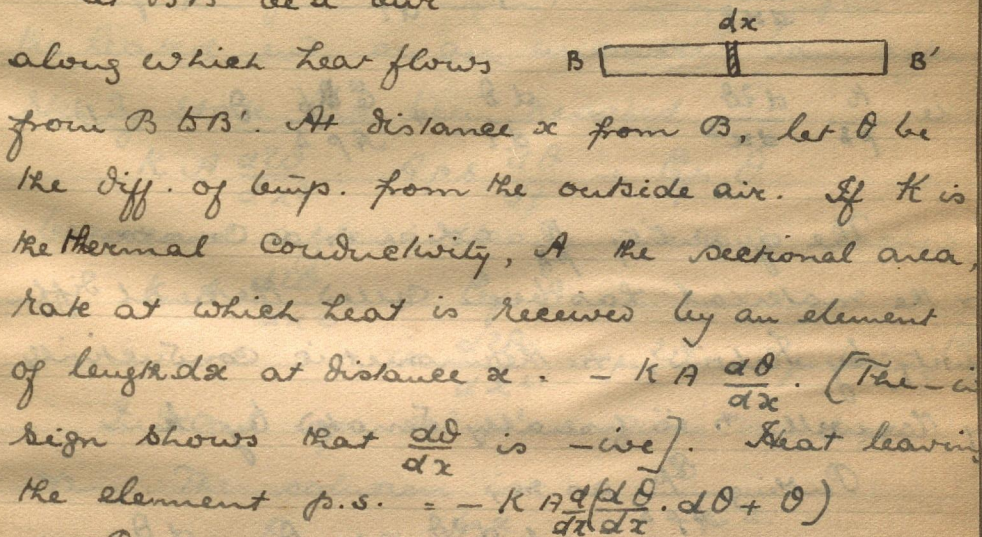 dx
along which heat flows B B'
from B to B'. At distance x from B, let θ be
the diff. of temp. from the outside air. If K is
the thermal conductivity, A the sectional area,
rate at which heat is received by an element
of length dx at distance x = - K A dθ/dx. [The -i
sign shows that dθ/dx is -ive]. Heat leavin
the element p.s. = - K A d/dx(dθ/dx . dθ + θ)